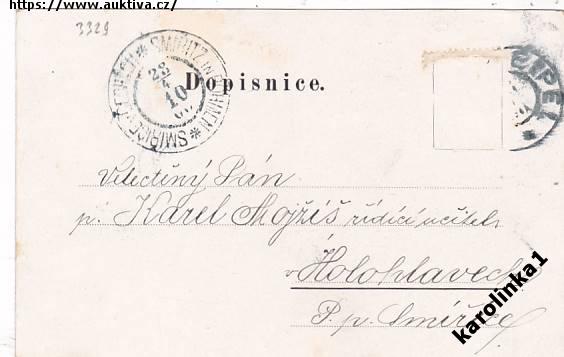 https://www.auktiva.cz/
3329
SMIRITZ IN BÖHMEN * SMIŘICE V ČECHÁCH *
23
4
10
Dopisnice.
Velectěný Pán
p. Karel Mojžíš řídící učitel
v Holohlavech
P. p. Smiřice
karolinka1